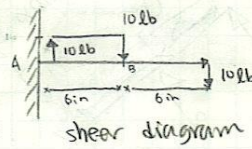 10 lb
10 lb
A
B
10 lb
6 in
6 in
sheer diagram